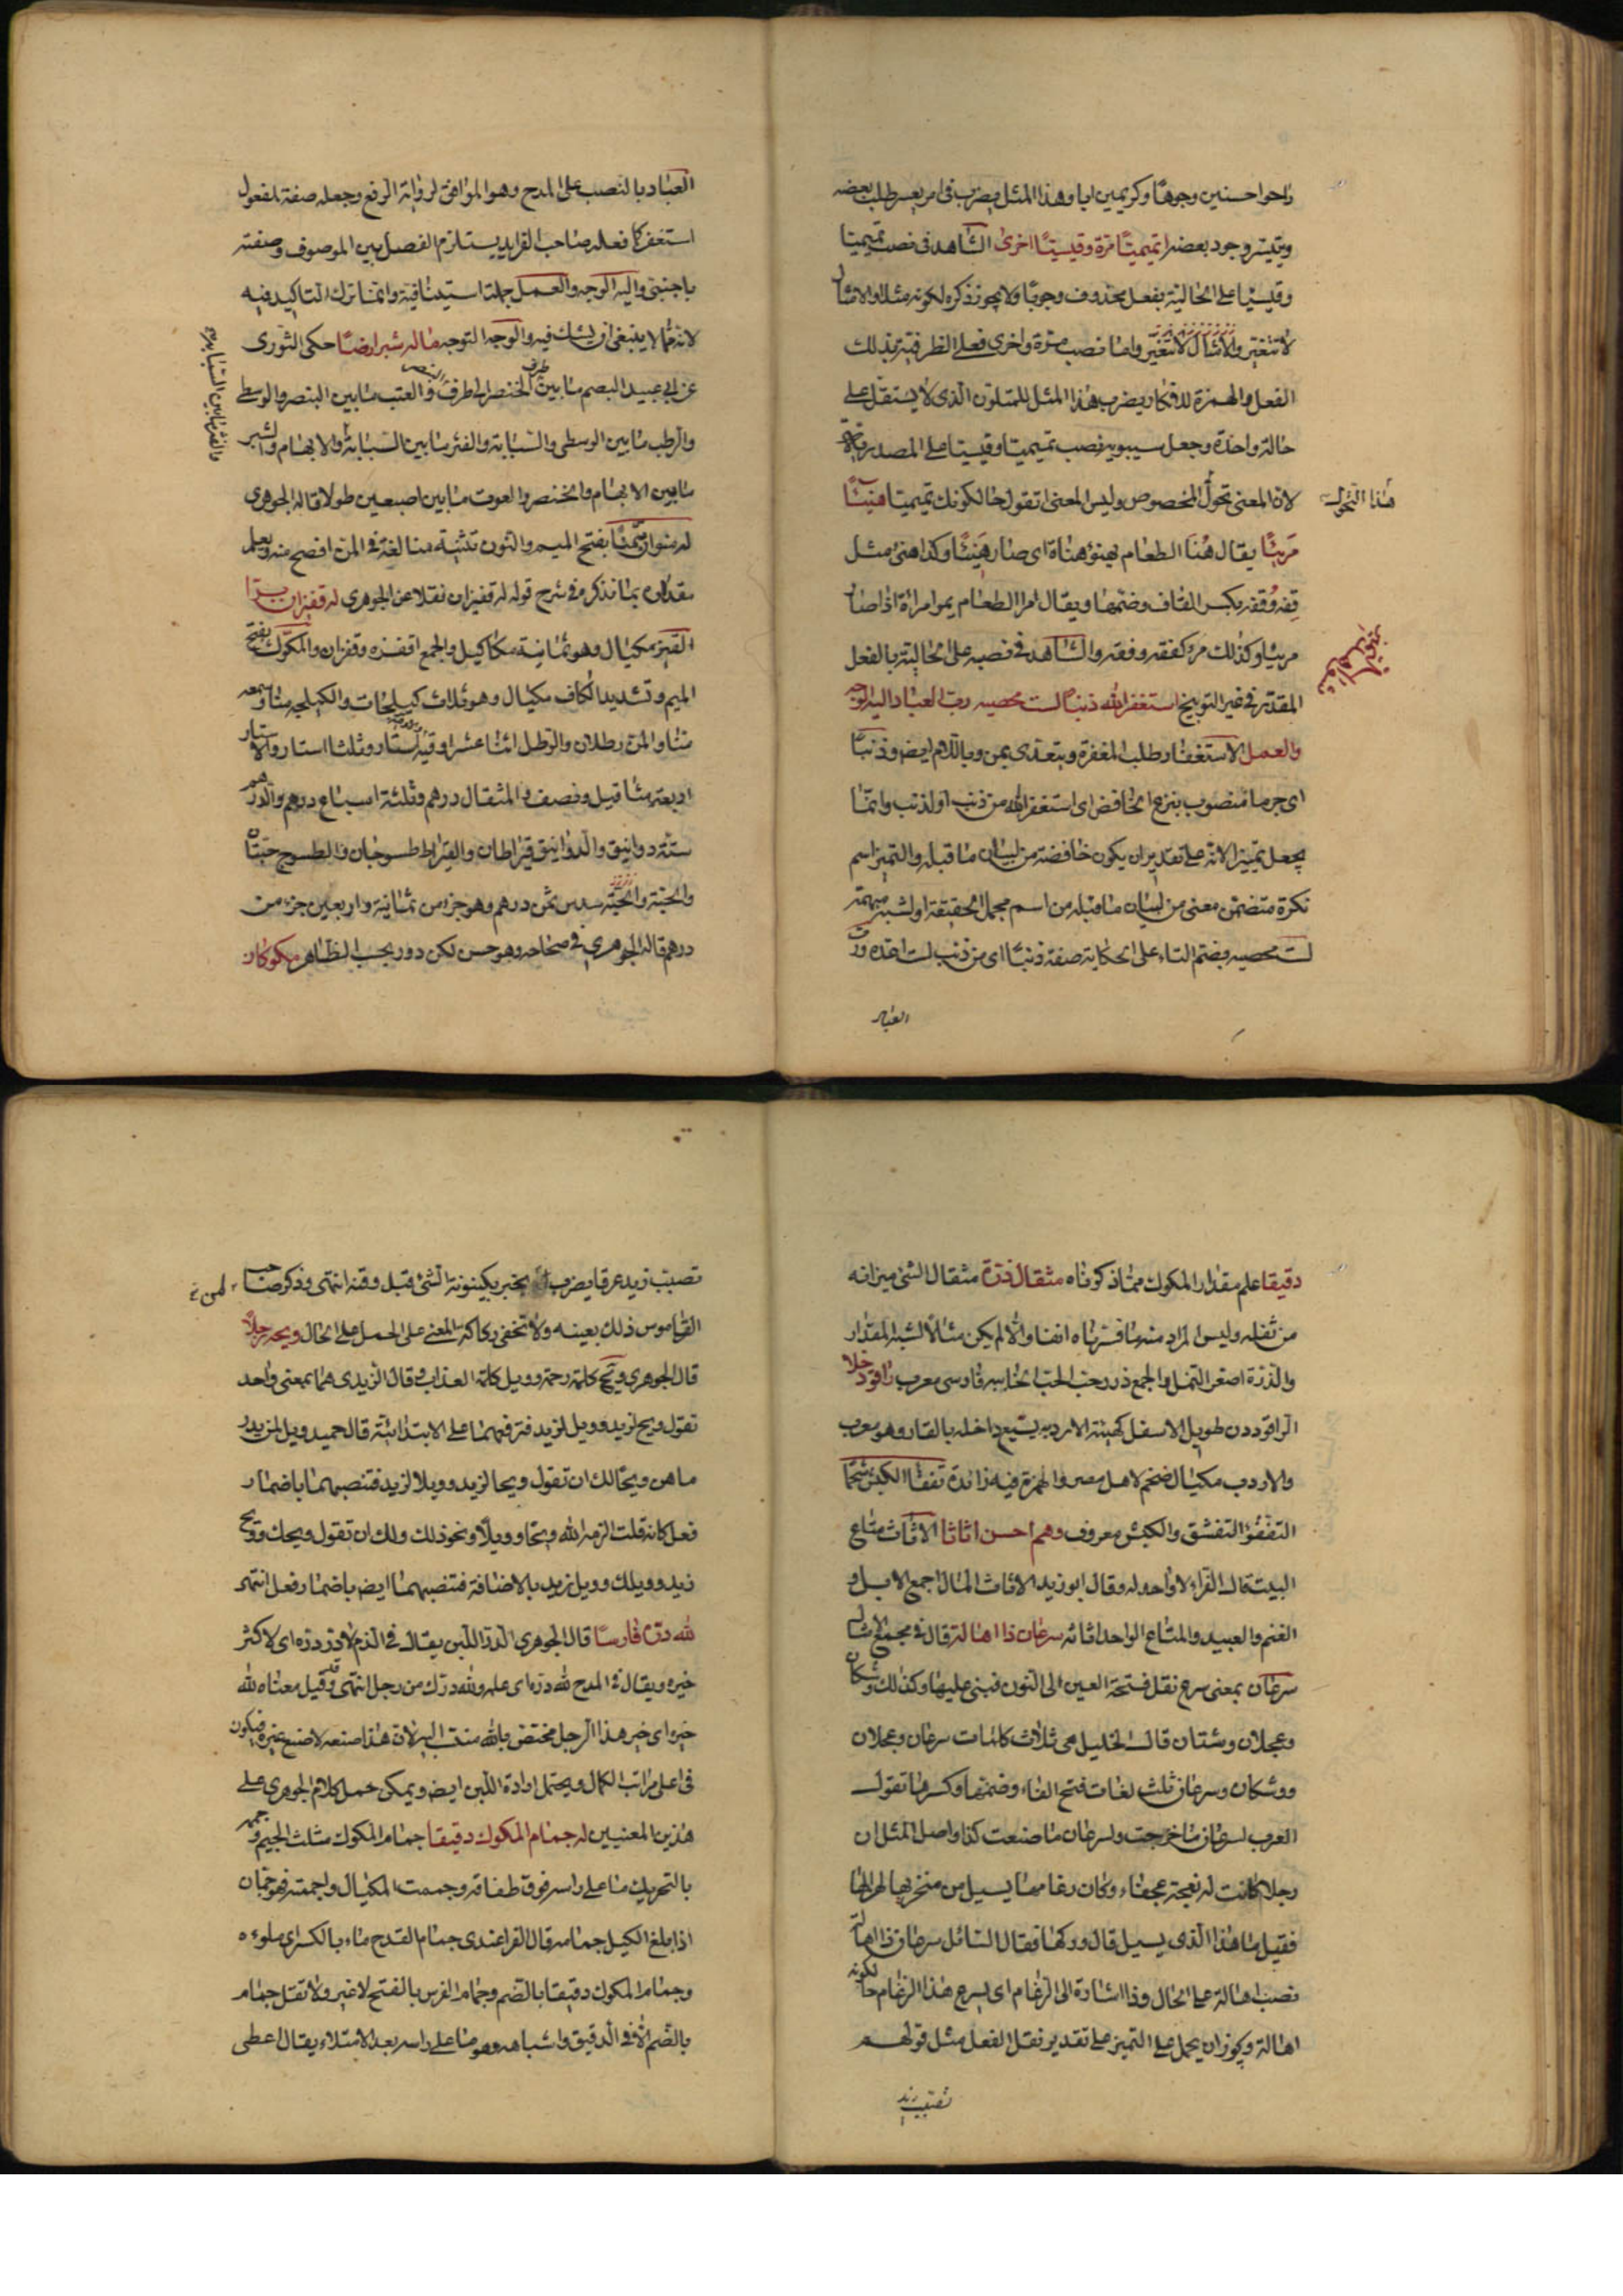 راحوا حسنين وجوها وكريمين ابا وهذا المثل يضرب فى امر يعسر طلب بعضه
ويتيسر وجود بعضه اتميميتا مرة وقيسيتا اخرى الشاهد فى نصب تميميتا
وقيسيا على الحالية بفعل محذوف وجوبا ولا يجوز ذكره لكونه مثلا والامثال
لا تتغير والامثال لا تتغير واما نصب مرة واخرى فعلى الظرفية بذلك
الفعل والهمزة للانكار يضرب هذا المثل للمتلون الذى لا يستقل على
حالة واحدة وجعل سيبويه نصب تميميتا وقيسيتا على المصدرية
لان المعنى تحول المخصوص وليس المعنى اتقول حال كونك تميميتا هنيئا
هذا التحول
مريئا يقال هنا الطعام يهنؤ هناة اى صار هنيئا وكذا هنئ مثل
فقه وفقه بكسر القاف وضمها ويقال امرا الطعام يمرا مراءة اذا صار
مريئا وكذلك مرؤ كفقه وفقه والشاهد فى نصبه على الحالية بالفعل
المقدر فى غير التوبيخ استغفر الله ذنبا لست محصيه رب العباد اليه الوجه
والعمل الاستغفار طلب المغفرة ويتعدى بمن وباللام ايض وذنبا
اى جرما منصوب بنزع الخافض اى استغفر الله من ذنب او لذنب وانما
يجعل تميزا لانه على تقدير ان يكون خافضة من لبيان ما قبله والتميز اسم
نكرة متضمن معنى من لبيان ما قبله من اسم مجمل الحقيقة او لشبه مبهمة
لست محصيه بضم التاء على الحكاية صفة ذنبا اى من ذنب لست اعده ورب
العباد
العباد بالنصب على المدح وهو الموافق لرواية الرفع وجعله صفة لمفعول
استغفر كما فعله صاحب الفرايد يستلزم الفصل بين الموصوف وصفته
باجنبى واليه الوجه والعمل جملة استينافية وانما ترك التاكيد فيه
لانه مما لا ينبغى ان يشك فيه والوجه التوجه ما له شبر ارضا حكى الثورى
عن ابى عبيد البصم ما بين طرف الخنصر الى طرف البنصر والعتب ما بين البنصر والوسطى
والرطب ما بين الوسطى والسبابة والفتر ما بين السبابة والابهام والشبر
ما بين الابهام والخنصر والعوت ما بين اصبعين طولا قاله الجوهرى
له منوان سمنا بفتح الميم والنون تثنية منا لغة فى المن افصح منه ويعلم
مقداره بما نذكر فى شرح قوله له قفيزان نقلا عن الجوهرى له قفيزان برا
القفيز مكيال وهو ثمانية مكاكيل والجمع اقفزه وقفزان والمكوك بفتح
الميم وتشديد الكاف مكيال وهو ثلاث كيلجات والكيلجه منا وسبعه
منا والمن رطلان والرطل اثنا عشر اوقيه استار وثلثا استار والاستار
اربعة مثاقيل ونصف والمثقال درهم وثلثة اسباع درهم والدرهم
ستة دوانيق والدوانيق قيراطان والقيراط طسوجان والطسوج حبتان
والحبة والحبة سدس ثمن درهم وهو جزء من ثمانية واربعين جزء من
درهم قاله الجوهرى فى صحاحه وهو حسن لكن دور بحسب الظاهر مكوكان
دقيقا علم مقدار المكوك مما ذكرناه مثقال ذرة مثقال الشئ ميزانه
من ثقله وليس المراد منه ما فسرناه انفا والا لم يكن مثالا لشبه المقدار
والذرة اصغر النمل والجمع ذر وحب الحب الخابيه فارسى معرب راقود خلا
الراقود دن طويل الاسفل كهيئة الاردبه يسيع داخله بالقار وهو معرب
والاردب مكيال ضخم لاهل مصر والهمزة فيه زائدة تفقا الكبش شحما
التفقؤ التفشق والكبش معروف وهم احسن اثاثا الاثاث متاع
البيت قال الفراء لا واحد له وقال ابو زيد الاثاث المال اجمع الابل و
الغنم والعبيد والمتاع الواحد اثاثه سرعان ذا اهالة قال فى مجمع الامثال
سرعان بمعنى سرع نقل فتحة العين الى النون فبنى عليها وكذلك وشكان
وعجلان وشتان قال الخليل هى ثلاث كلمات سرعان وعجلان
ووشكان وسرعان ثلث لغات فتح الفاء وضمها وكسرها تقول
العرب لسرعان ما خرجت ولسرعان ما صنعت كذا واصل المثل ان
رجلا كانت له نعجة عجفاء وكان رغامها يسيل من منخريها لهزالها
فقيل ما هذا الذى يسيل قال ودكها فقال السائل سرعان ذا اهالة
نصب اهالة على الحال وذا اشارة الى الرغام اى لسرع هذا الرغام حال كونه
اهالة ويجوز ان يحمل على التميز على تقدير نقل الفعل مثل قولهم
تصبب زيد
تصبب زيد عرقا يضرب لمن يخبر بكينونة الشئ قبل وقته انتهى وذكر صاحب
القاموس ذلك بعينه ولا تخفى ركاكة المعنى على الحمل على الحال ويحه رجلا
قال الجوهرى ويح كلمة رحمة وويل كلمة العذاب وقال الزيدى هما بمعنى واحد
تقول ويح لزيد وويل لزيد فترفعهما على الابتدائية قال حميد وويل لمن يدر
ما هن ويحا لك ان تقول ويحا لزيد وويلا لزيد فتنصبهما باضمار
فعل كانه قلت الزمه الله ويحا وويلا ونحو ذلك ولك ان تقول ويحك وويح
زيد وويلك وويل زيد بالاضافة فتنصبهما ايض باضمار فعل انتهى
لله دره فارسا قال الجوهرى الدر اللبن يقال فى الذم لا در دره اى لا كثر
خيره ويقال فى المدح لله دره اى عمله ولله درك من رجل انتهى وقد قيل معناه لله
خيره اى خير هذا الرجل مختص بالله منتسب اليه لان هذا صنعه لا صنع غيره فيكون
فى اعلى مراتب الكمال ويحتمل ارادة اللبن ايض ويمكن حمل كلام الجوهرى على
هذين المعنيين له جمام المكوك دقيقا جمام المكوك مثلث الجيم وجممه
بالتحريك ما على راسه فوق طفافه وجممت المكيال واجممته فهو جمان
اذا بلغ الكيل جمامه قال الفرا عندى جمام القدح ماء بالكسر اى ملوءه
وجمام المكوك دقيقا بالضم وجمام الفرس بالفتح لا غير ولا تقل جمام
بالضم الا فى الدقيق واشباهه وهو ما على راسه بعد الامتلاء يقال اعطى